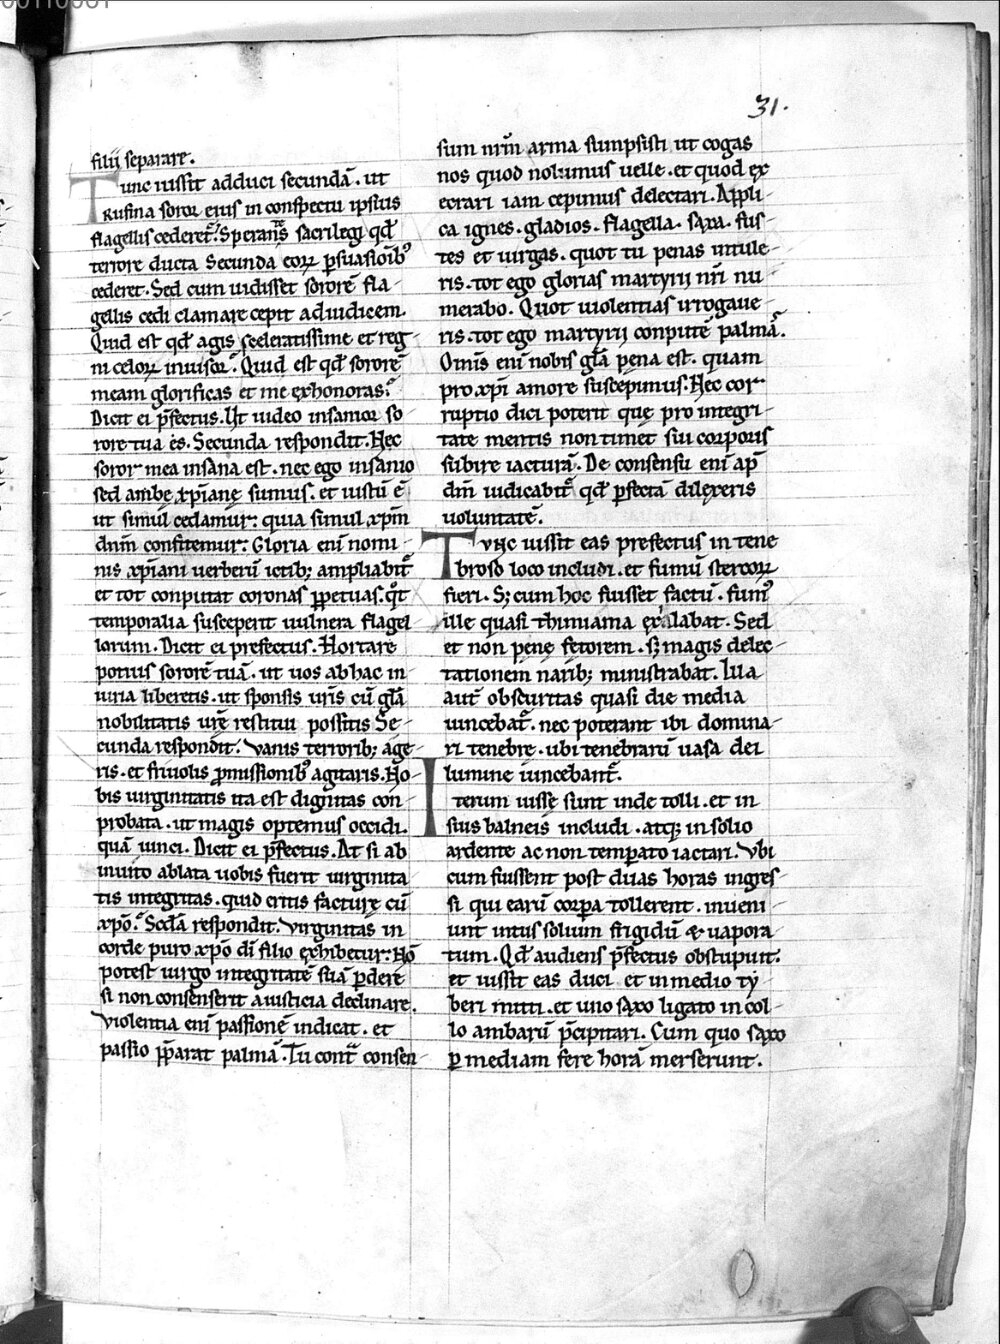 31.
filii separare.
Tunc iussit adduci secundā. ut
Rufina soror eius in conspectu ipsius
flagellis cederet. Sperans sacrilegꝰ qđ
terrore ducta Secunda eoꝝ ꝑsuasionibꝰ
cederet. Sed cum uidisset sororē fla-
gellis cedi clamare cepit ad iudicem.
Quid est qđ agis sceleratissime et reg-
ni celoꝝ inuisor. Quid est qđ sororē
meam glorificas et me exhonoras.
Dicit ei p̄fectus. Ut uideo insanior so-
rore tua es. Secunda respondit. Nec
soror mea insana est. nec ego insanio
sed ambę xp̄ianę sumus. et iustū ē
ut simul cedamur: quia simul xp̄m
dnm̄ confitemur. Gloria eni nomi-
nis xp̄iani uerberū ictib; ampliabit̄
et tot conputat coronas ꝑpetuas. qͦt
temporalia susceperit uulnera flagel
lorum. Dicit ei prefectus. Hortare
potius sororē tuā. ut uos ab hac in-
iuria liberetis. ut sponsis ur̄is cū gl̄a
nobilitatis ur̄ę restitui possitis Se-
cunda respondit. Vanis terrorib; age-
ris. et friuolis ꝓmissionibꝰ agitaris. No-
bis uirginitatis ita est dignitas con-
probata. ut magis optemus occidi.
quā uinci. Dicit ei p̄fectus. At si ab
inuito ablata uobis fuerit uirginita
tis integritas. quid eritis facturę cū
xp̄o. Scda respondit. Virginitas in
corde puro xp̄o dī filio exhibetur: Nō
potest uirgo integritatē suā ꝑdere
si non consenserit a iusticia declinare.
Violentia eni passionē indicat. et
passio p̄parat palmā. Tu cont̄ consen-
sum nrm̄ arma sumpsisti ut cogas
nos quod nolumus uelle. et quod ex
ecrari iam cepimus delectari. Appli-
ca ignes. gladios. flagella. saxa. fus-
tes et uirgas. quot tu penas intule-
ris. tot ego glorias martyrii nr̄i nu
merabo. Quot uiolentias irrogaue-
ris. tot ego martyrii conputē palmā.
Omis eni nobis gl̄a pena est. quam
pro xp̄i amore suscepimus. Nec cor-
ruptio dici poterit quę pro integri-
tate mentis non timet sui corporis
subire iacturā. De consensu eni ap̄
dm̄ iudicabit̄ qđ ꝑfectā dilexeris
uoluntatē.
Tunc iussit eas prefectus in tene
broso loco includi. et fumū stercoꝝ
fieri. S; cum hoc fuisset factū. fumꝰ
ille quasi thimiama exalabat. Sed
et non penę fetorem. s; magis delec-
tationem narib; ministrabat. Illa
aut̄ obscuritas quasi die media
uincebat̄. nec poterant ibi domina-
ri tenebre. ubi tenebrarū uasa dei
lumine uincebant̄.
Iterum iussę sunt inde tolli. et in
sius balneis includi. atq; in solio
ardente ac non temp̄ato iactari. Vbi
cum fuissent post duas horas ingres-
si qui earū corpa tollerent. inueni-
unt intus solium frigidū & uapora
tum. Qđ audiens p̄fectus obstupuit.
et iussit eas duci et in medio ty
beri mitti. et uno saxo ligato in col-
lo ambarū p̄cipitari. Cum quo saxo
ꝑ mediam fere horā merserunt.